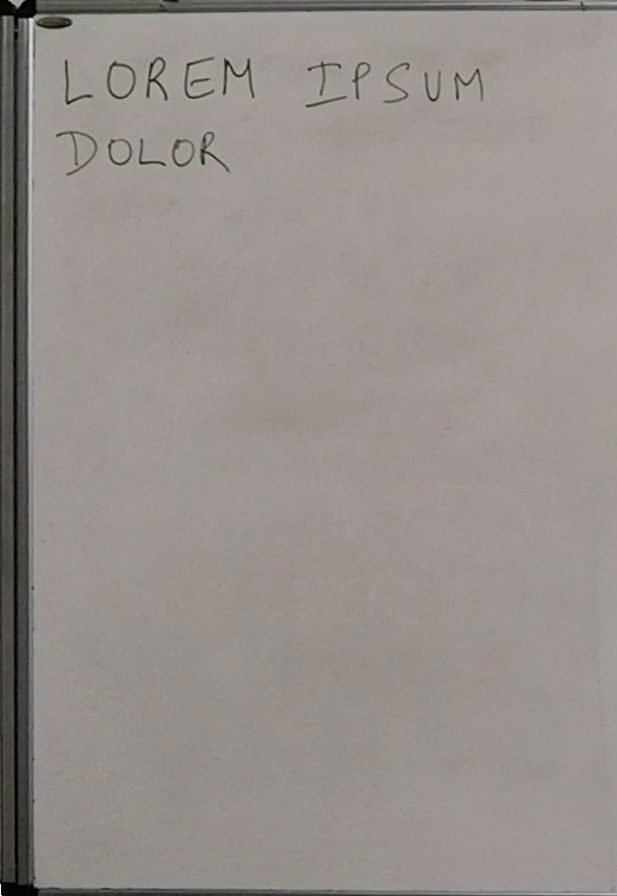 LOREM IPSUM
DOLOR